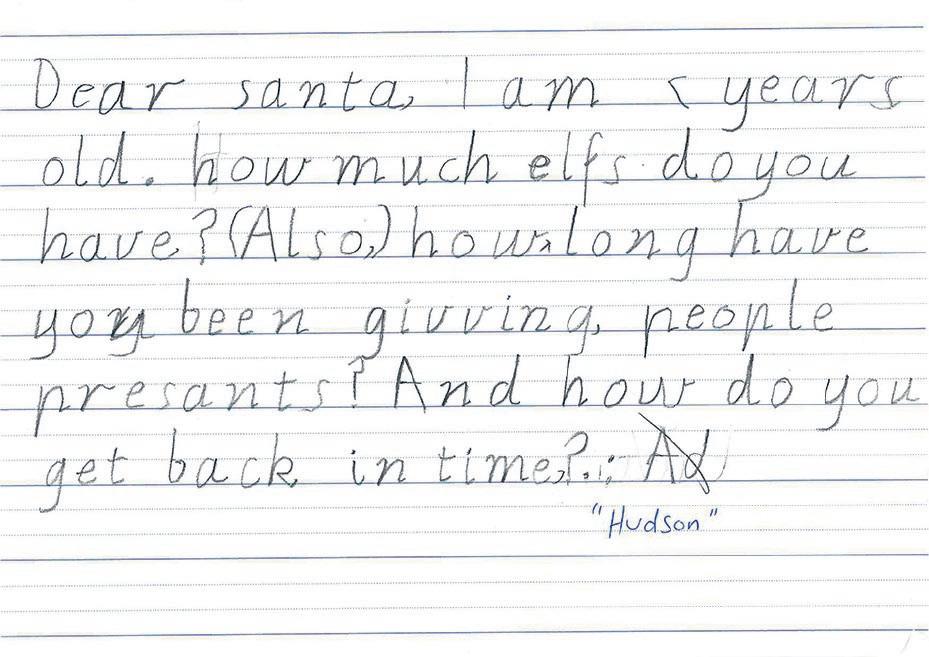 Dear santa, I am 5 years
old. how much elfs do you
have? (Also,) how long have
you been givving, people
presants? And how do you
get back in time?.,;- Ad
"Hudson"